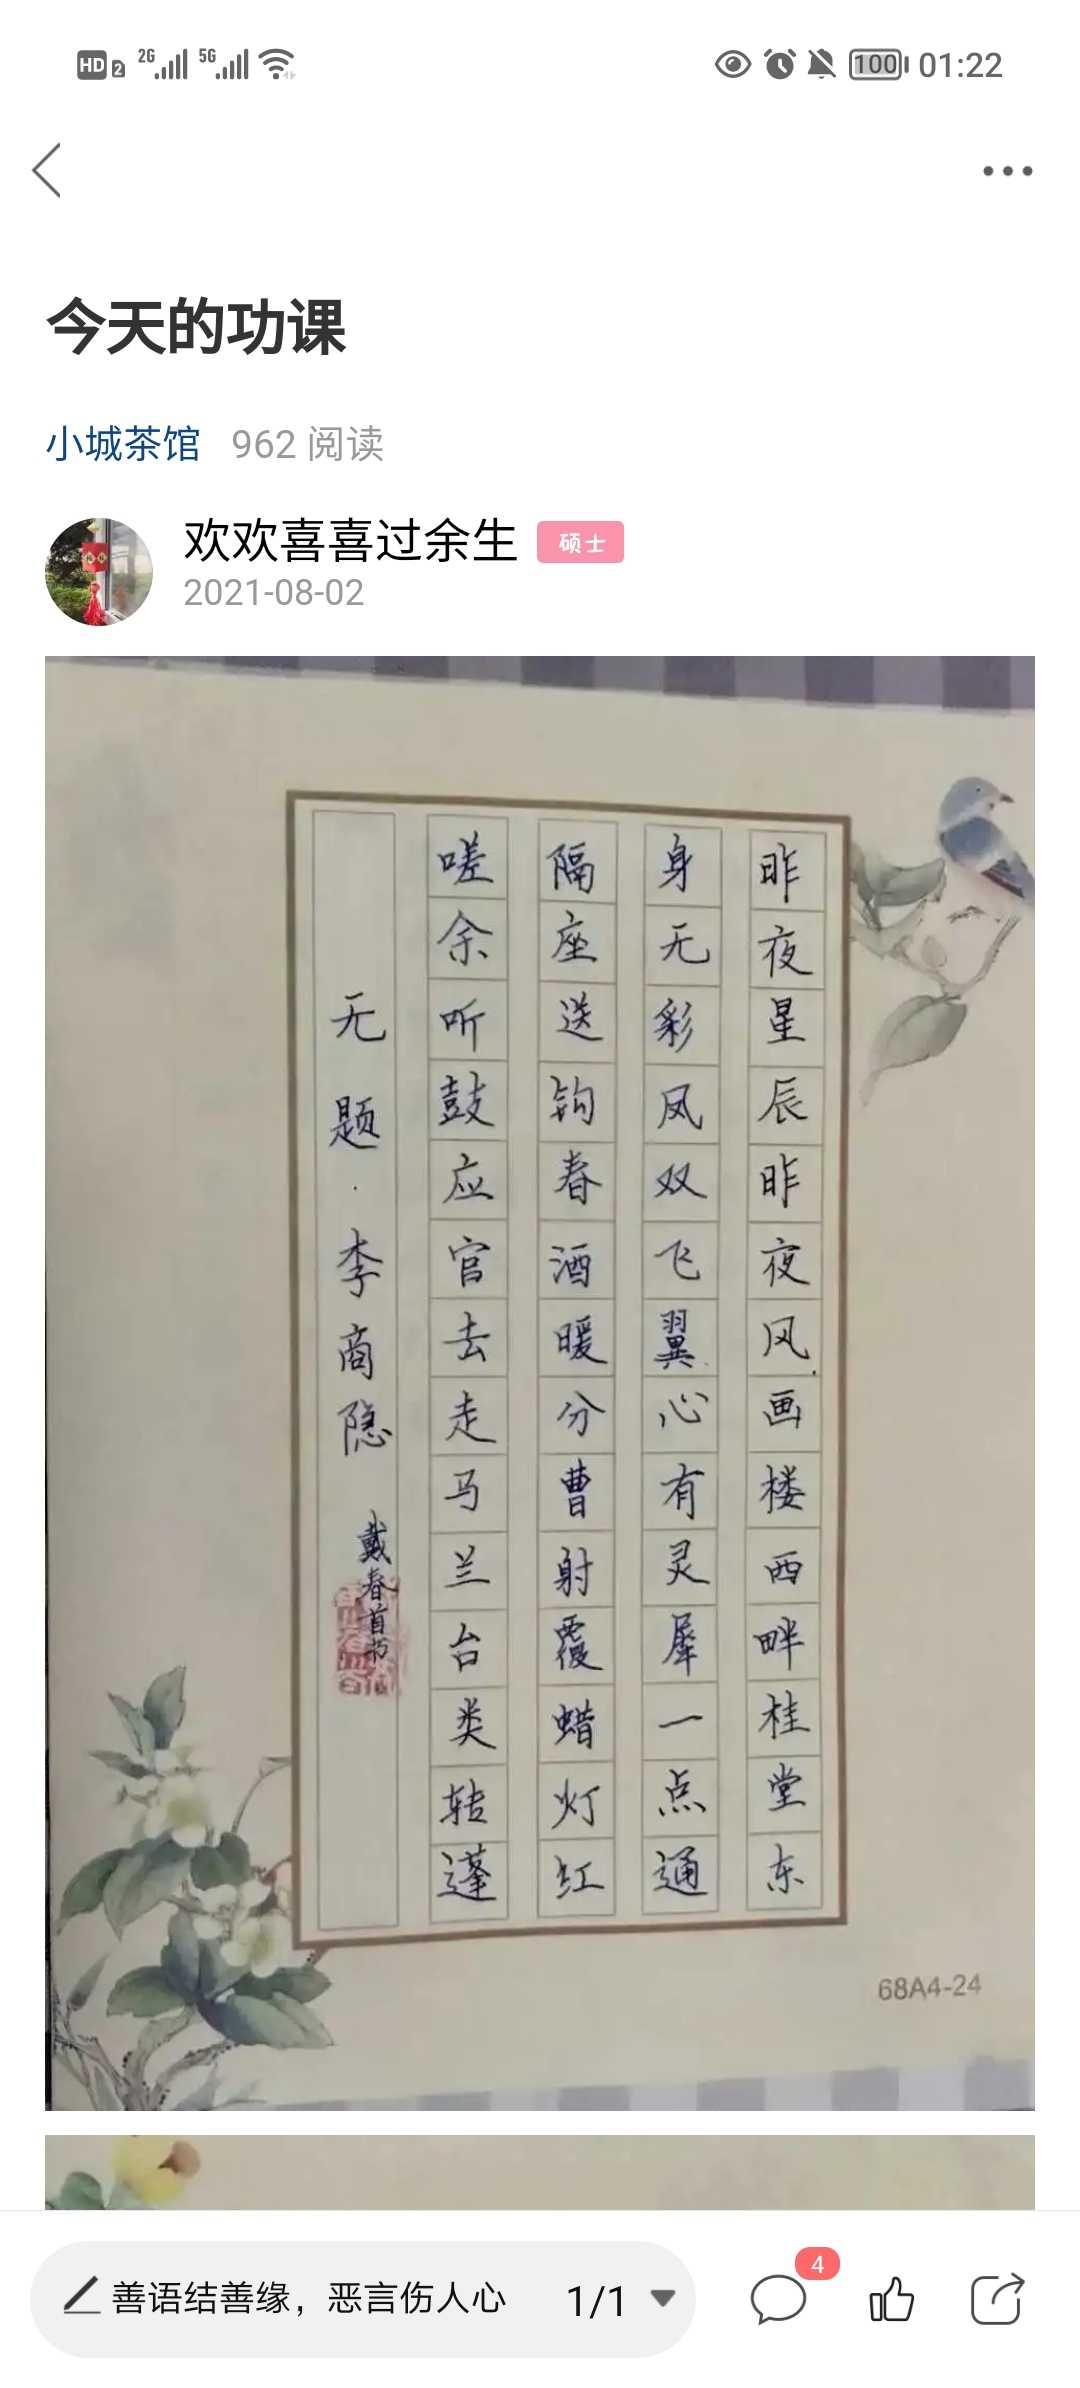 HD 2 2G 5G 100 01:22
今天的功课
小城茶馆 962 阅读
欢欢喜喜过余生 硕士
2021-08-02
昨夜星辰昨夜风画楼西畔桂堂东
身无彩凤双飞翼心有灵犀一点通
隔座送钩春酒暖分曹射覆蜡灯红
嗟余听鼓应官去走马兰台类转蓬
无题·李商隐 戴春首书
68A4-24
善语结善缘，恶言伤人心 1/1 4